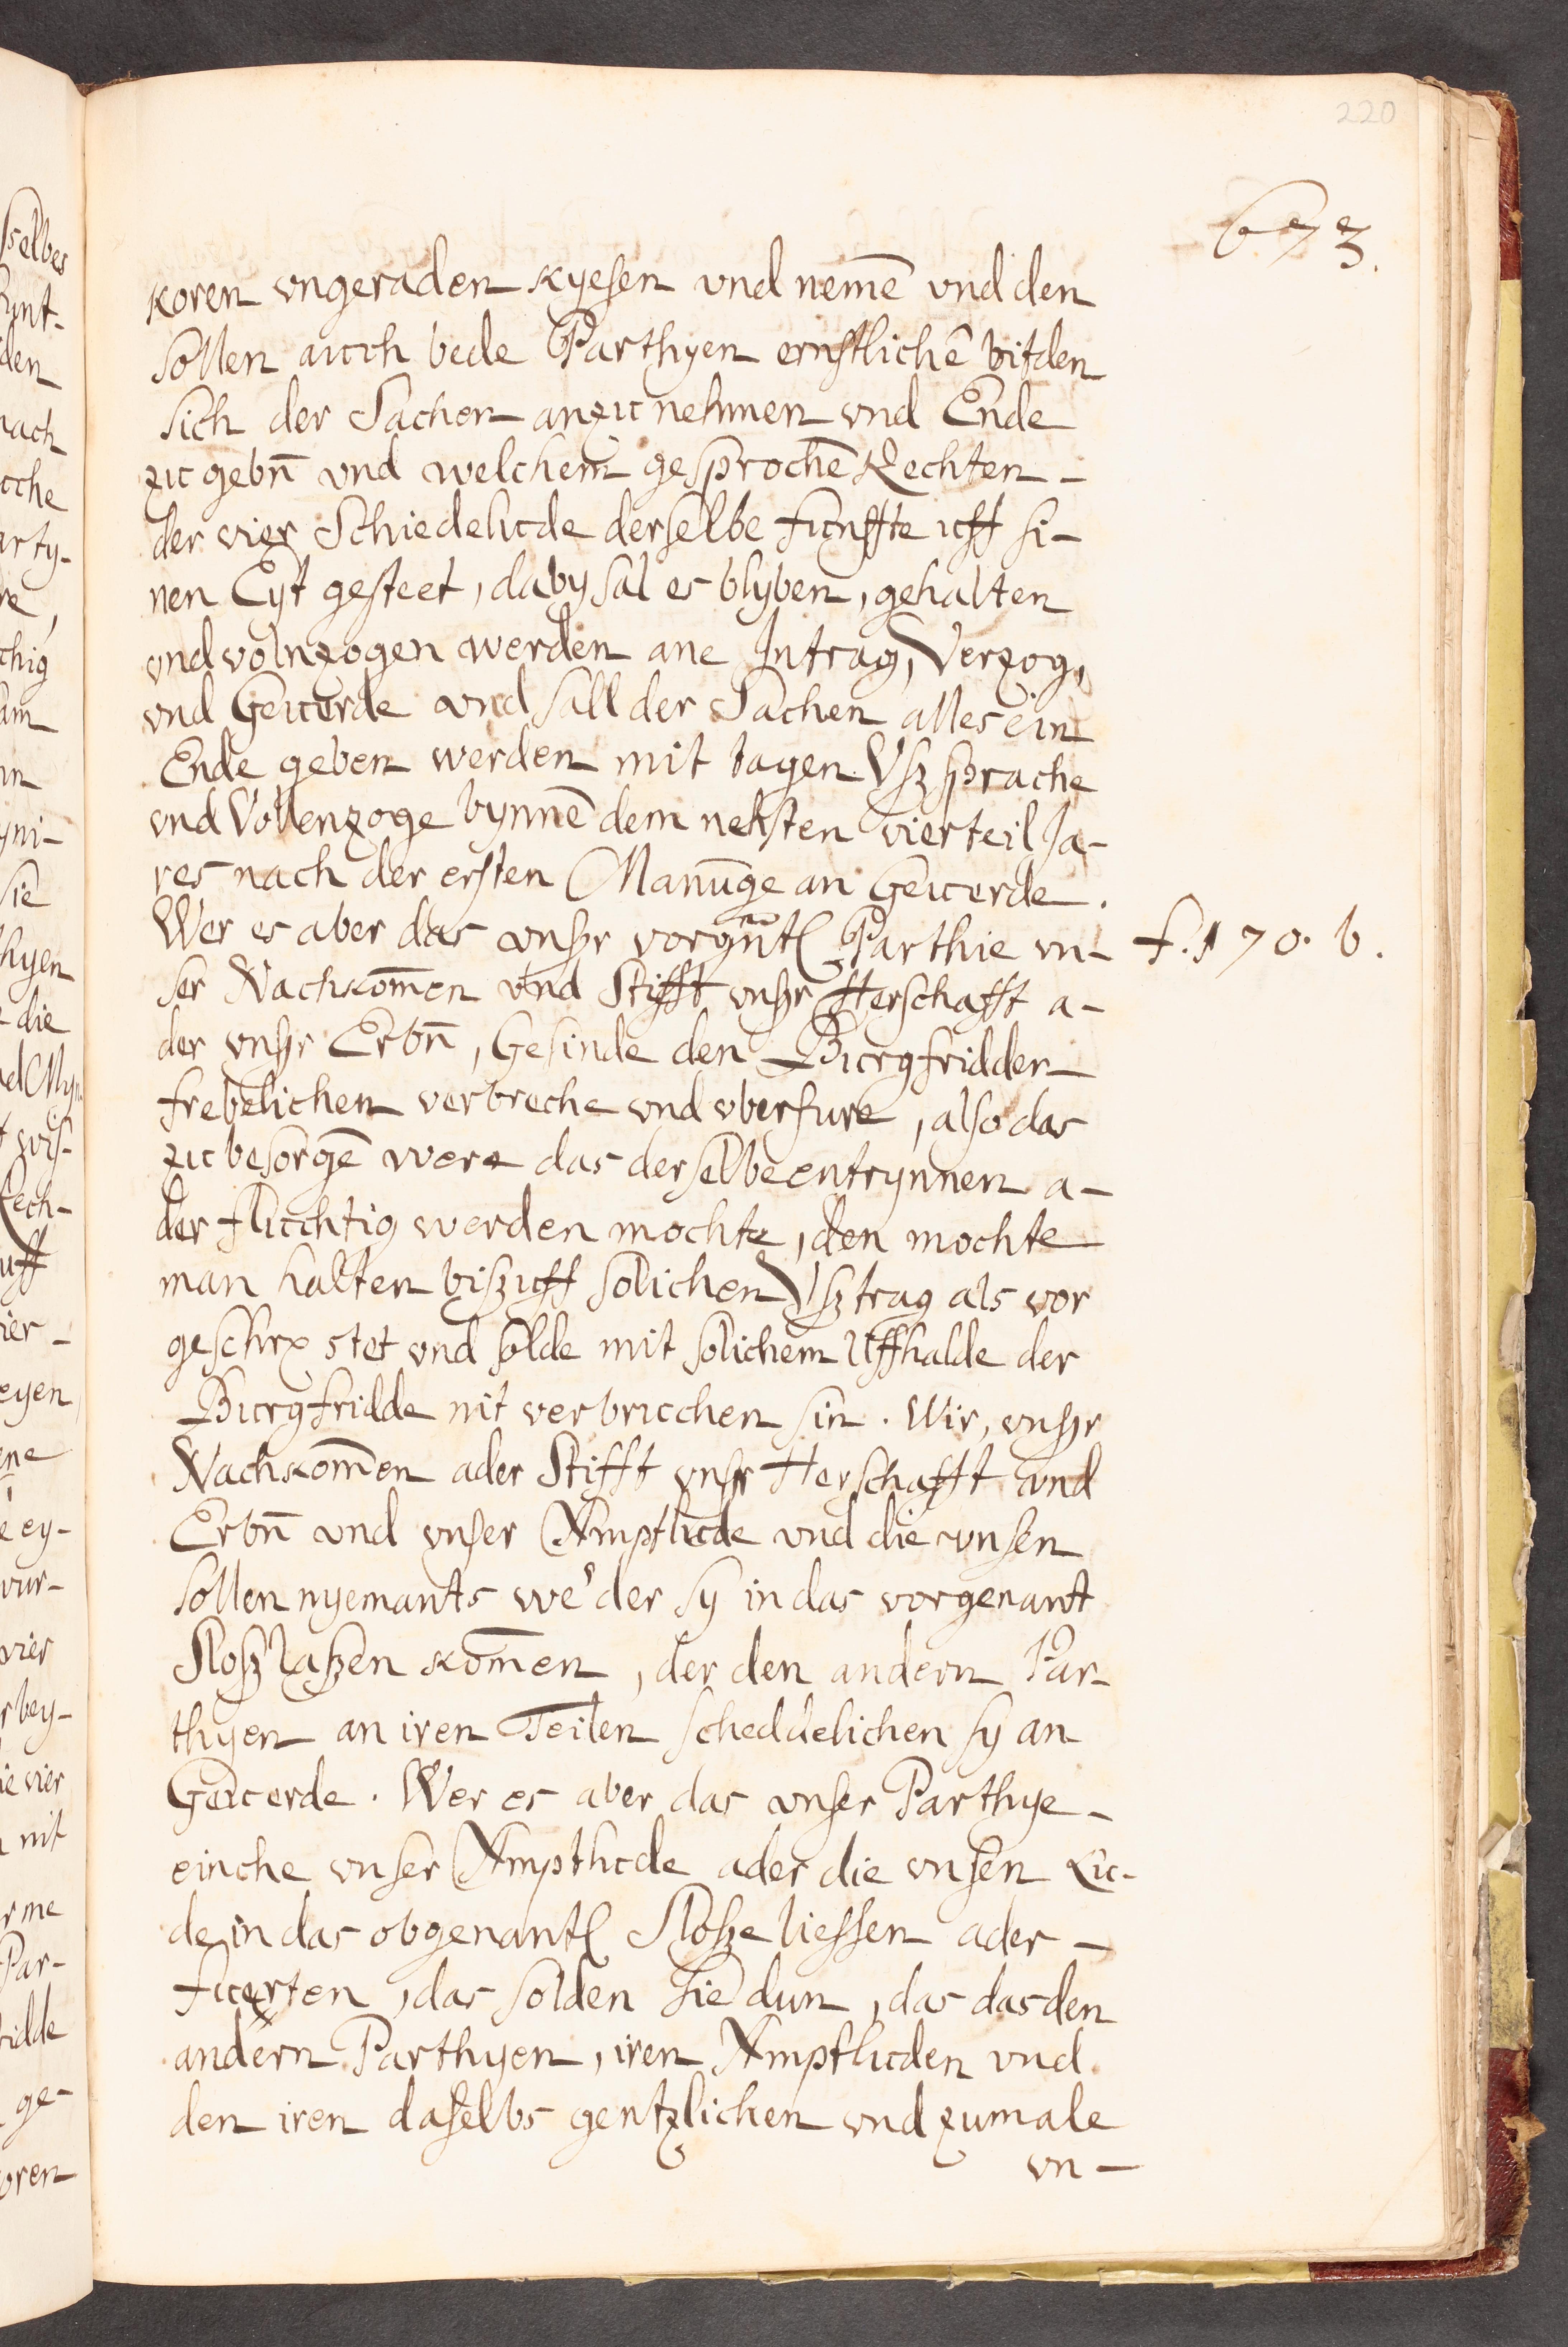 220
673.
koren ungeraden kyesen vnd nemē vnd den
sollen auch bede Parthyen ernstlichē bitden
sich der Sachen anzu nehmen vnd Ende
zu gebn̄ vnd welchem gesprochē Rechten -
der vier Schiedelude derselbe funffte uff si-
nen Eyt gesteet, daby sal es blyben, gehalten
vnd volnzogen werden ane Intrag, Verzog,
vnd Geuerde vnd sall der Sachen alles ein
Ende geben werden mit tagen Vßsprache
vnd Vollenzoge bynnē dem nehsten vierteil Ja-
res nach der ersten Manūge an Geuerde.
Wer es aber das vnßr vorgn̄tl Parthie vn- f. 170. b.
ser Nachkom̄en vnd Stifft vnßr Herschafft a-
der vnßr Erbn̄, Gesinde den Burgfridden
frebelichen verbreche vnd vberfure, also das
zu besorgē were das derselbe entrynnen a-
der fluchtig werden mochte, den mochte
man halten biß uff solichen Vßtrag als vor
geschrx stet vnd solde mit solichem Uffhalde der
Burgfridde nit verbruchen sin. Wir, vnßr
Nachkom̄en ader Stifft vnßr Herschafft vnd
Erbn̄ vnd vnser Amptlude vnd die vnsen
sollen nyemants we'der sy in das vorgenant
Sloßlaßen kom̄en, der den andern Par-
thyen an iren Teilen scheddelichen sy an
Geuerde. Wer es aber das vnser Parthye -
einche vnser Amptlude ader die vnsen Lu-
de in das obgenantl Sloße liessen ader -
fuerten, das solden sie dun, das das den
andern Parthyen, iren Amptluden vnd
den iren daselbs gentzlichen vnd zumale
vn-